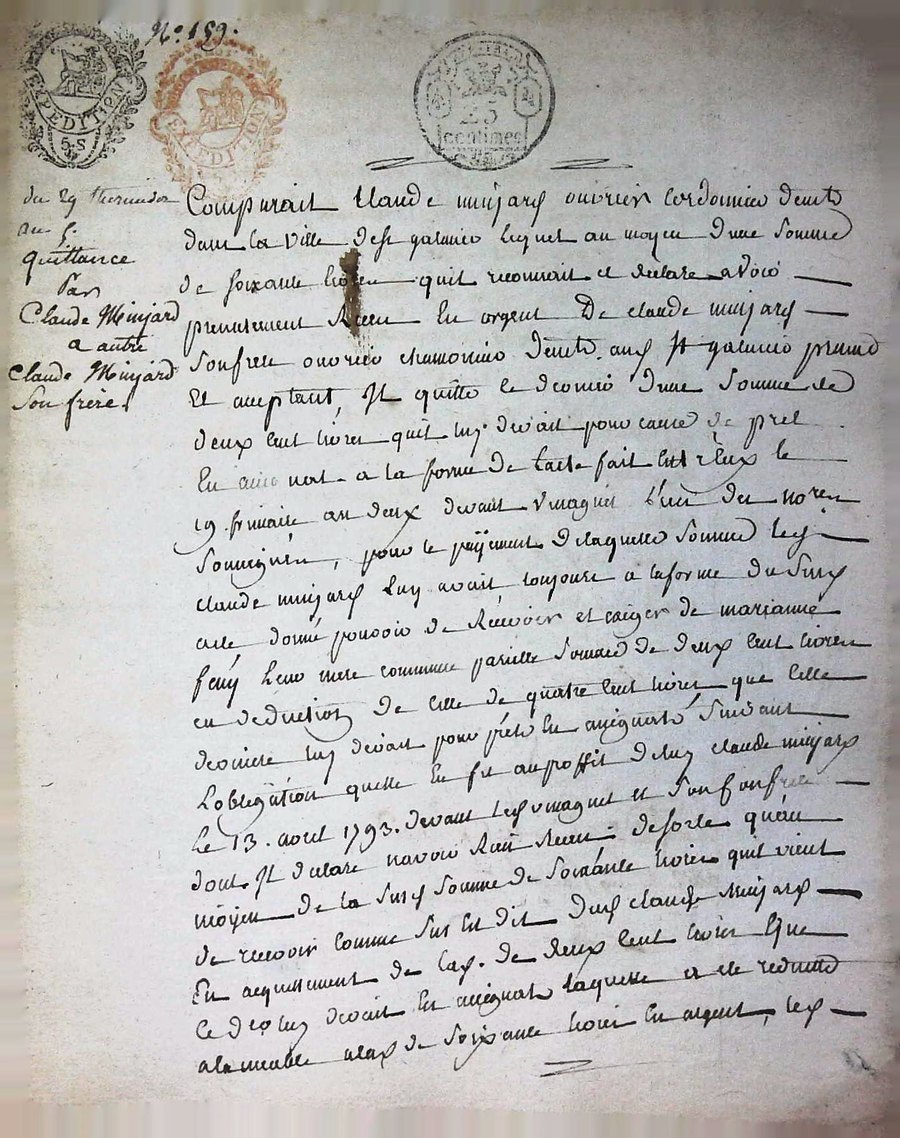 N.o 159.
EXPEDITION
5.S
EXPEDITION
25
centimes
du 29 thermidor
an 5.
quittance
par
Claude Minjard
a autre
Claude Minjard
son frere.
Comparait Claude minjard ouvrier cordonnier demt
dans la ville de st galmier lequel au moyen d'une somme
de soixante livres quil reconnait et declare avoir
presentement Receu En argent De claude minjard
son frere ouvrier chamoisier demt. aud st galmier present
Et acceptant, Il quitte ce dernier d'une somme de
deux cent livres quil luy devait pour cause de pret
En assignat a la forme de lacte fait Entr'Eux le
19 frimaire an deux devant Vmagnet l'un des nores
Soussignés, pour le payement de laquelle somme led
claude minjard Luy avait toujours a la forme du susd
acte donné pouvoir de Recevoir et exiger de marianne
feny Leur mere commune pareille somme de deux cent livres
en deduction de celle de quatre cent livres que cette
derniere luy devait pour prêt En assignats suivant
L'obligation quelle En fit au proffit de luy claude minjard
Le 13. avril 1793. devant led vmagnet et son confrere
dont Il declare navoir Rien Receu. desorte qu'au
moyen de la susd somme de soixante livres quil vient
de recevoir comme sus est dit dud claude Minjard
En acquittement de cax. de deux cent livres que
ce der luy devait En assignats laquelle a ete reduitte
a lamiable a lax de soixante livres En argent, led